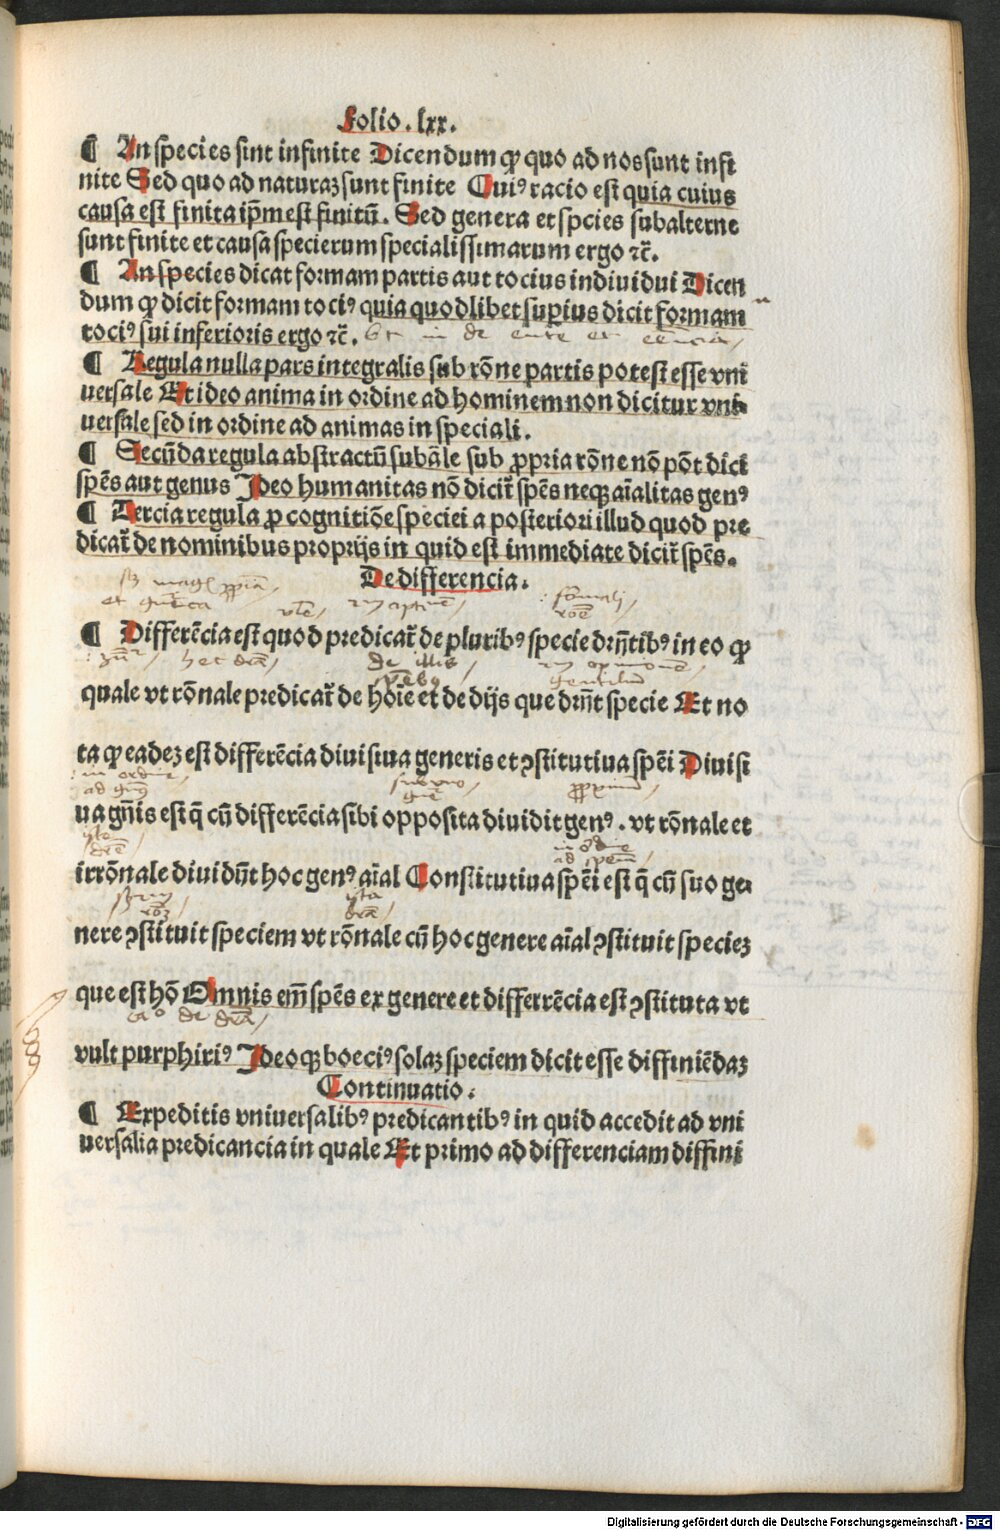 Folio. lxx.
¶ An species sint infinite Dicendum ꝙ quo ad nos sunt infi
nite Sed quo ad naturaꝫ sunt finite Cuiꝰ racio est quia cuius
causa est finita ip̄m est finitū. Sed genera et sp̄cies subalterne
sunt finite et causa specierum specialissimarum ergo ⁊c̄.
¶ An species dicat formam partis aut tocius indiuidui Dicen
dum ꝙ dicit formam tociꝰ quia quodlibet suꝑius dicit formam
tociꝰ sui inferioris ergo ⁊c̄. in de ente et
¶ Regula nulla pars integralis sub rōne partis potest esse vni
uersale Et ideo anima in ordine ad hominem non dicitur vni
uersale sed in ordine ad animas in speciali.
¶ Secūda regula abstractū subāle sub ꝓpria rōne nō pōt dici
spēs aut genus Ideo humanitas nō dicit̄ spēs neqꝫ aīalitas genꝰ
¶ Tercia regula ꝓ cognitiōe speciei a posteriori illud quod pre
dicat̄ de nominibus proprijs in quid est immediate dicit̄ spēs.
De differencia.
¶ Differēcia est quod predicat̄ de pluribꝰ specie drn̄tibꝰ in eo ꝙ
hec dr̄ia de illis
quale vt rōnale predicat̄ de hoīe et de dijs que drn̄t specie Et no
ta ꝙ eadeꝫ est differēcia diuisiua generis et ꝯstitutiua spēi Diuisi
in ordine
ua gn̄is est q̄ cū differēcia sibi opposita diuidit genꝰ. vt rōnale et
irrōnale diuidūt hoc genꝰ aīal Constitutiua spēi est q̄ cū suo ge
nere ꝯstituit speciem vt rōnale cū hoc genere aīal ꝯstituit specieꝫ
que est hō Omnis em̄ spēs ex genere et differrēcia est ꝯstituta vt
vult purphiriꝰ Ideoqꝫ boeciꝰ solaꝫ speciem dicit esse diffiniēdaꝫ
Continuatio.
¶ Expeditis vniuersalibꝰ predicantibꝰ in quid accedit ad vni
uersalia predicancia in quale Et primo ad differenciam diffini
Digitalisierung gefördert durch die Deutsche Forschungsgemeinschaft - DFG